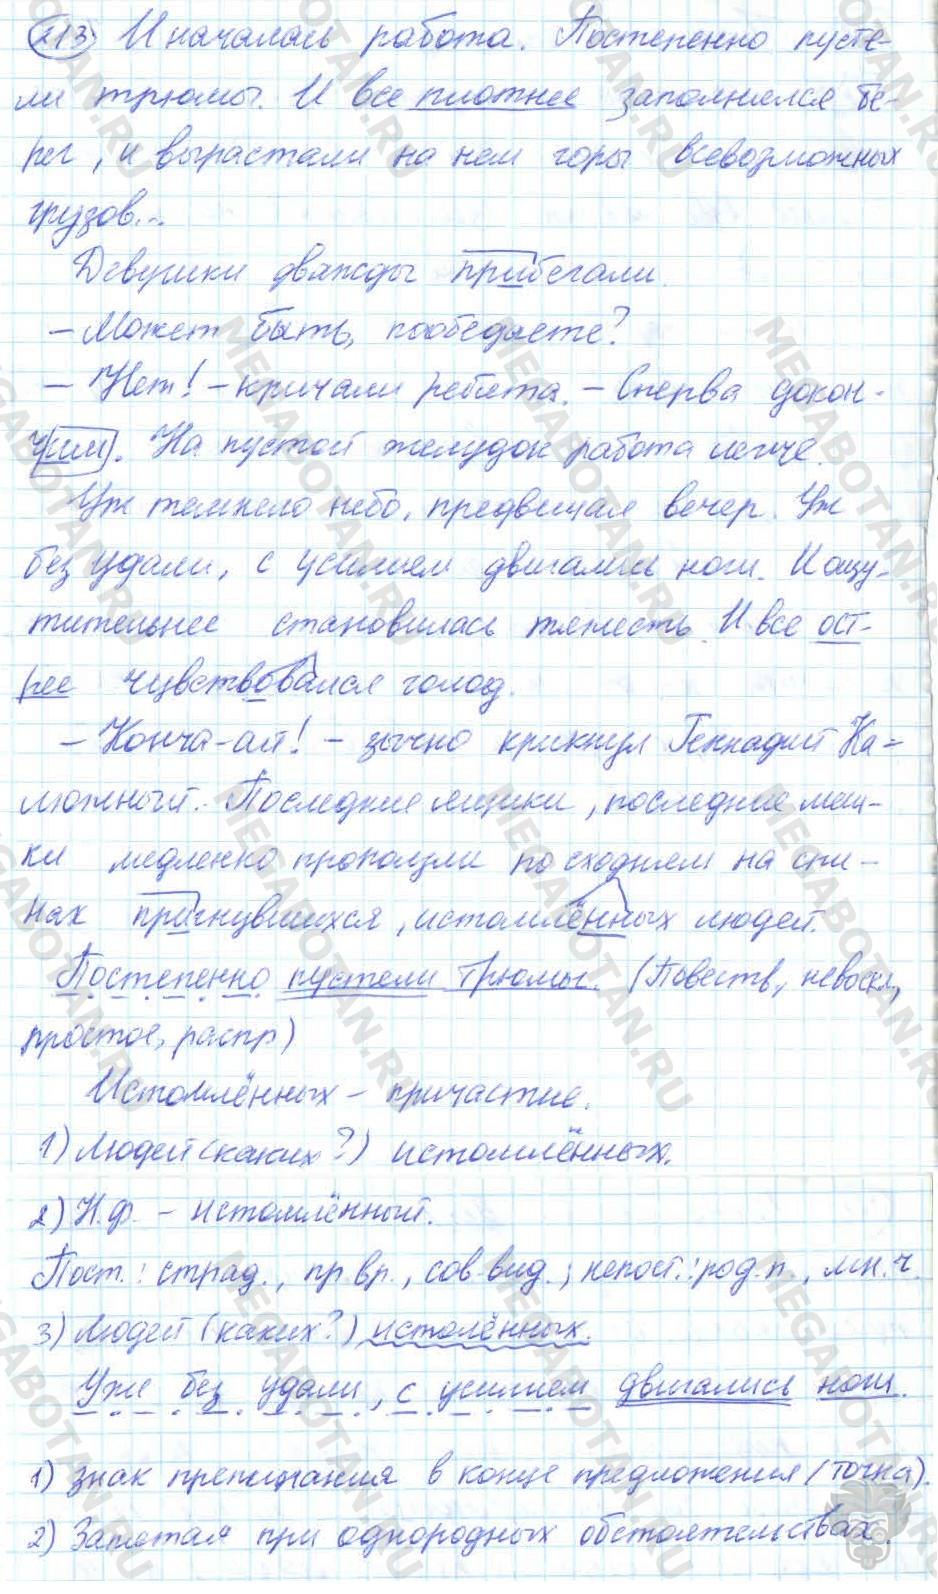 213. И началась работа. Постепенно пусте-
ли трюмы. И все плотнее заполнялся бе-
рег, и вырастали на нем горы всевозможных
грузов...
Девушки дважды прибегали.
– Может быть, пообедаете?
– Нет! – кричали ребята. – Сперва докон-
чим. На пустой желудок работа легче.
Уж темнело небо, предвещая вечер. Уж
без удали, с усилием двигались ноги. И ощу-
тительнее становилась тяжесть. И все ост-
рее чувствовался голод.
– Конча-ай! – зычно крикнул Геннадий Ка-
люжный. Последние ящики, последние меш-
ки медленно проползли по сходням на спи-
нах пригнувшихся, истомлённых людей.
Постепенно пустели трюмы. (Повеств., невоскл.,
простое, распр)
Истомлённых – причастие.
1) Людей (каких?) истомлённых.
2) Н.ф. – истомлённый.
Пост.: страд., пр вр., сов вид.; непост.: род.п., мн.ч.
3) Людей (каких?) истолённых.
Уже без удали, с усилием двигались ноги.
1) Знак препинания в конце предложения (точка).
2) Запятая при однородных обстоятельствах.
MEGABOTAN.RU